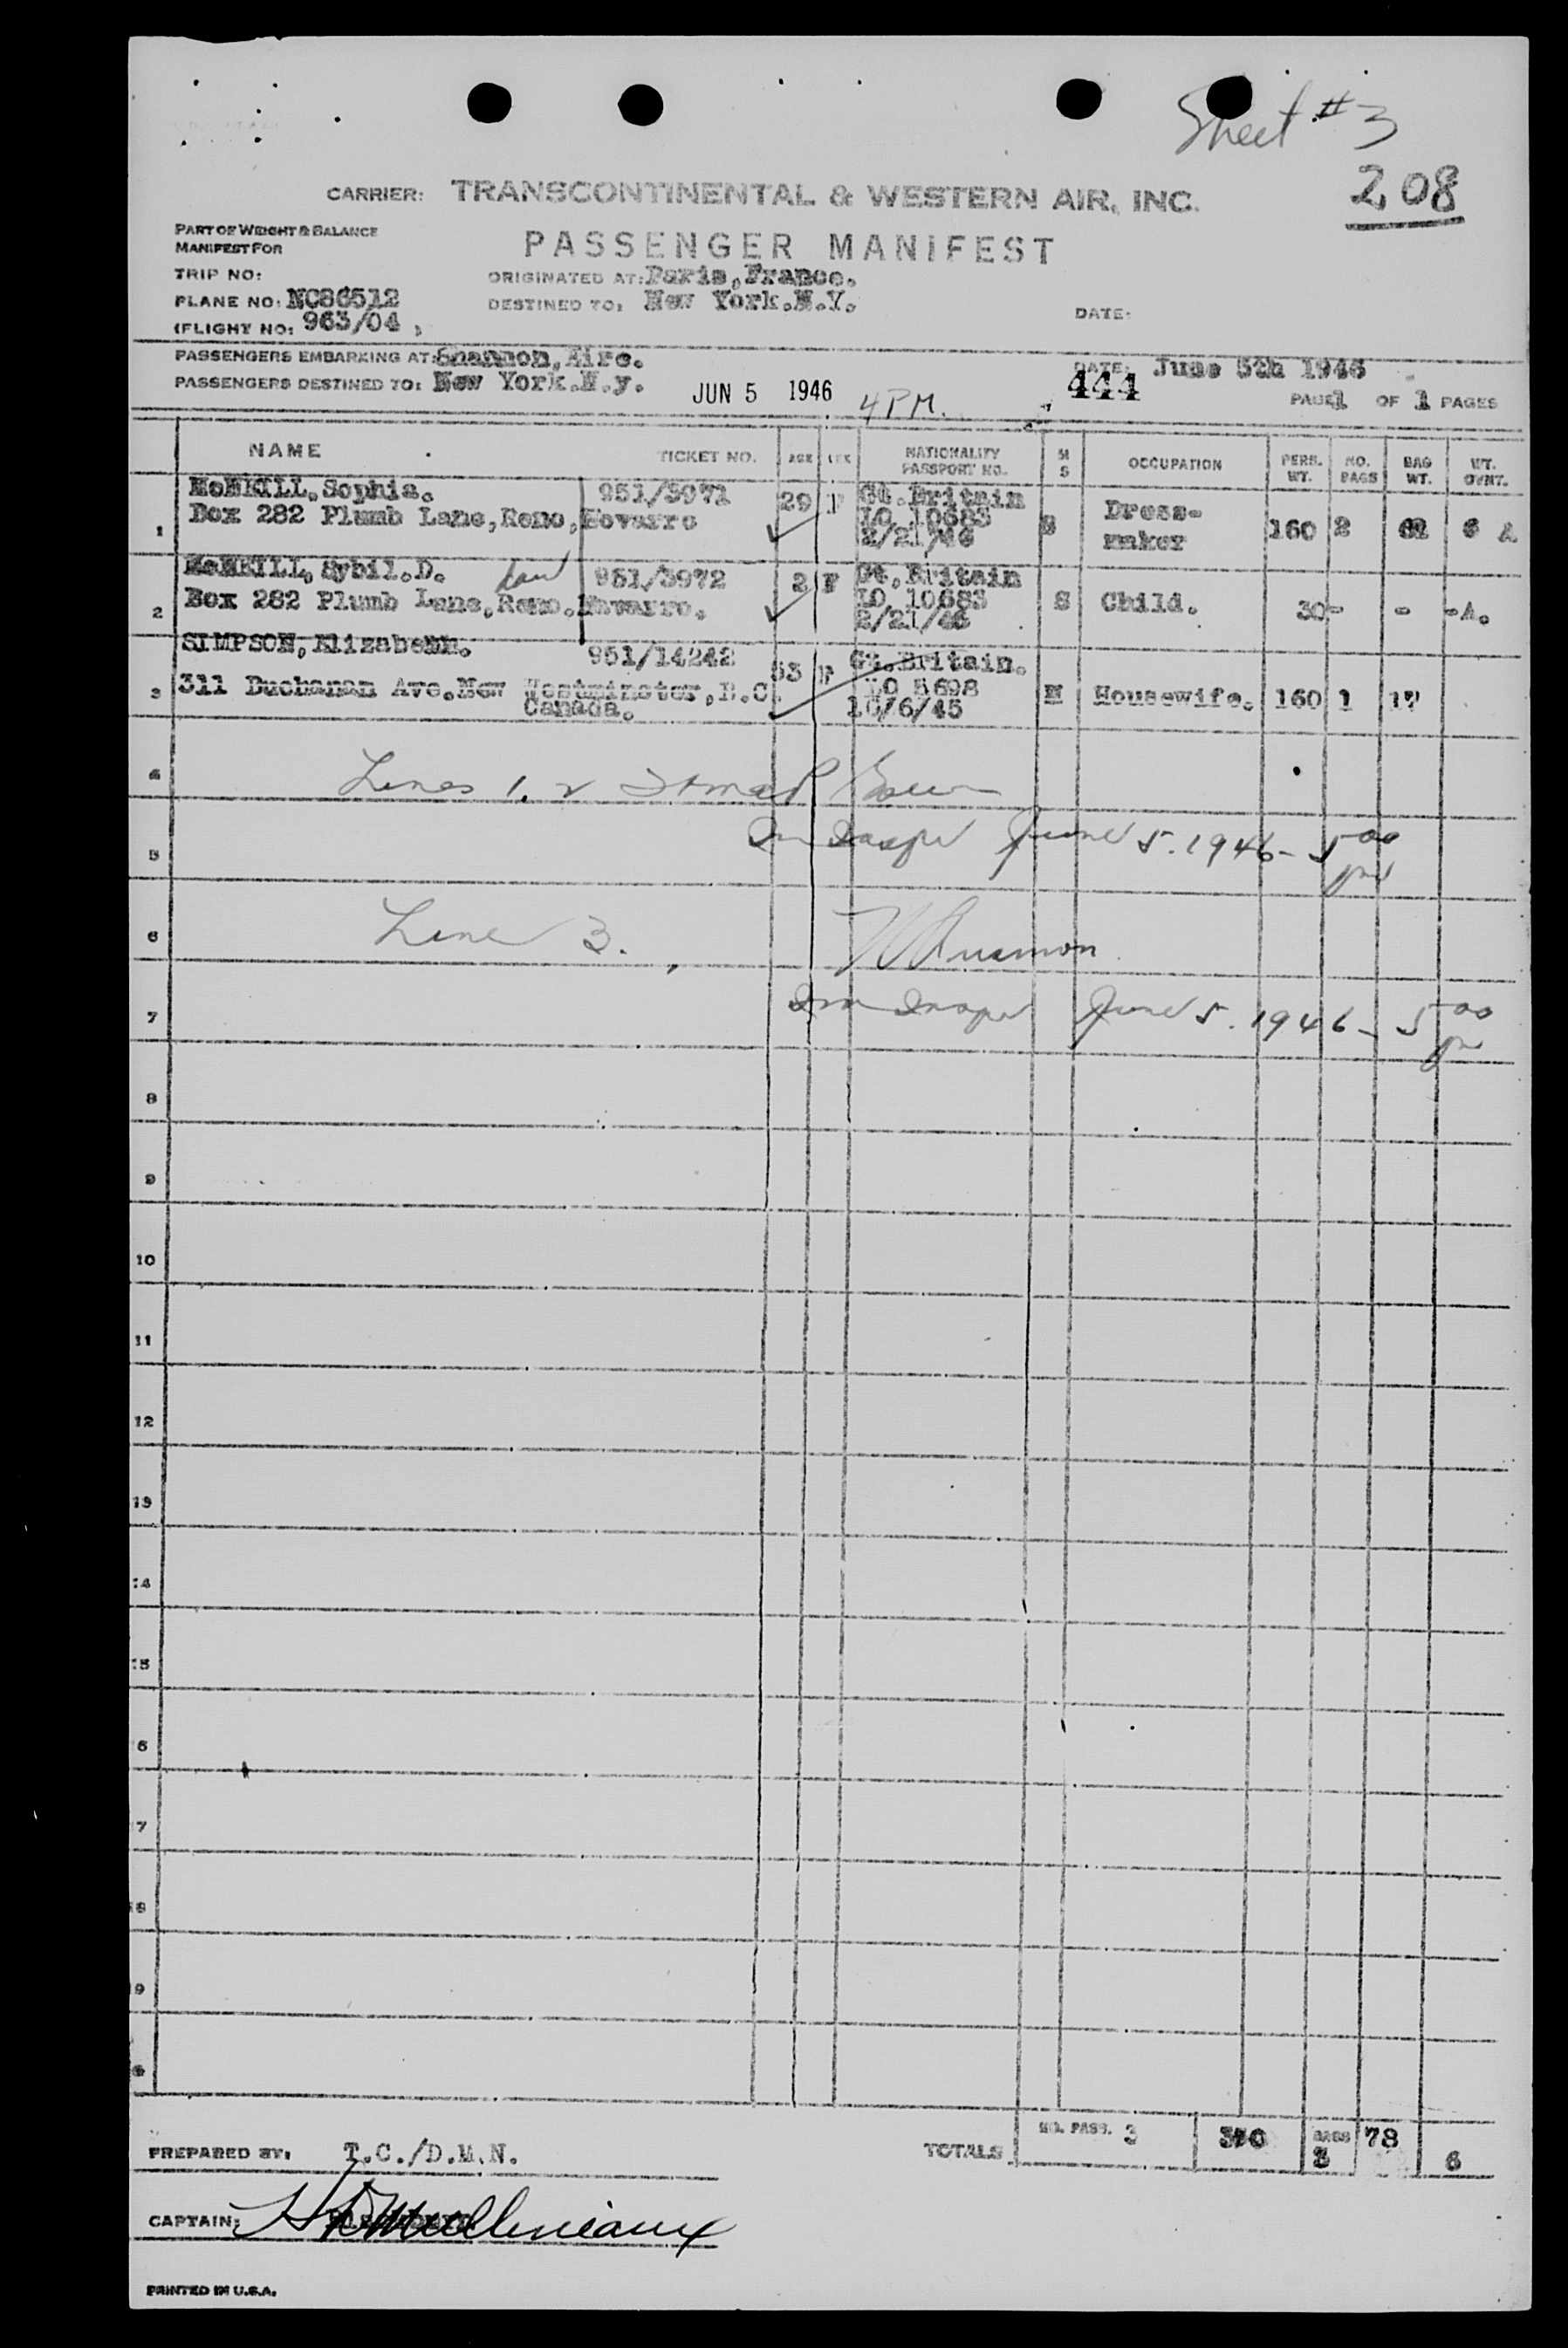 Sheet #3
208
CARRIER: TRANSCONTINENTAL & WESTERN AIR, INC.
PART OF WEIGHT & BALANCE
MANIFEST FOR
PASSENGER MANIFEST
TRIP NO:
ORIGINATED AT: Paris, France.
PLANE NO: NC86512
DESTINED TO: New York.N.Y.
(FLIGHT NO: 963/04
DATE:
PASSENGERS EMBARKING AT: Shannon, Eire.
DATE: June 5th 1946
PASSENGERS DESTINED TO: New York.N.y.
JUN 5 1946 4 PM.
444
PAGE 1 OF 1 PAGES
NAME TICKET NO. AGE SEX NATIONALITY PASSPORT NO. M S OCCUPATION PERS. WT. NO. BAGS BAG WT. WT. OVWT.
McNEILL, Sophia. 951/3971 29 F Gt. Britain
1 Box 282 Plumb Lane, Reno, Novarro IO 10683 S Dress-maker 160 2 6 A
2/21/46
McNEILL, Sybil.D. 951/3972 2 F Gt. Britain
2 Box 282 Plumb Lane, Reno. Navarro. IO 10683 S Child. 30 - - - A.
2/21/46
SIMPSON, Elizabeth. 951/14242 53 F Gt. Britain.
3 311 Buchanan Ave. New Westminster, B.C. 5698 M Housewife. 160 1 17
Canada. 10/6/45
4 Lines 1. 2
5 June 5. 1946 - 5 00 pm
6 Line 3.
7 June 5. 1946 - 5 00 pm
8
9
10
11
12
13
14
15
6
7
8
9
TOTALS NO. PASS. 3 BAGS 3 78 6
PREPARED BY: T.C./D.M.N.
CAPTAIN:
PRINTED IN U.S.A.